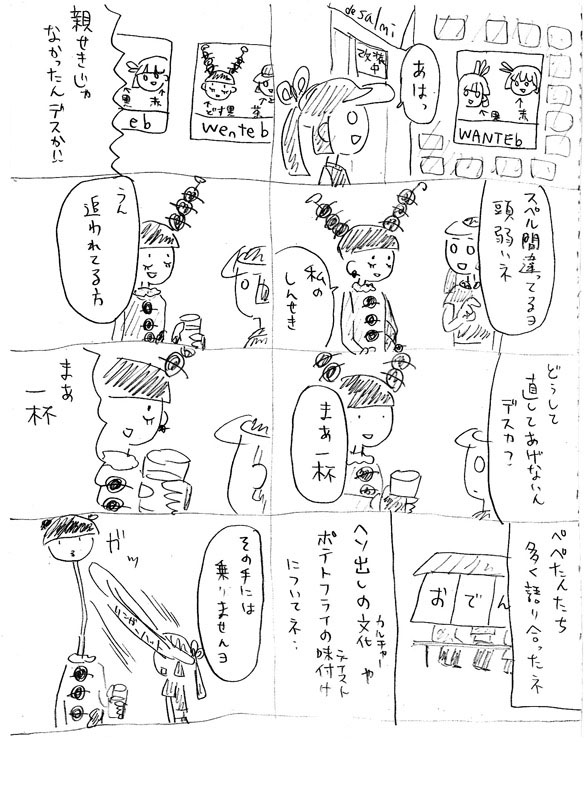 de salmi
改装
中
あはっ
↑黒
↑赤
WANTEb
↑どす黒
茶
wenteb
↑黒
↑赤
eb
親せきじゃ
なかったんデスか!!
スペル間違ってるヨ
頭弱いネ
私の
しんせき
うん
追われてる方
どうして
直してあげないん
デスカ?
まあ一杯
まあ
一杯
ペペたんたち
多く語り合ったネ
おでん
ヘソ出しの文化や
カルチャー
ポテトフライの味付け
テイスト
についてネ…
その手には
乗りませんヨ
ガッ